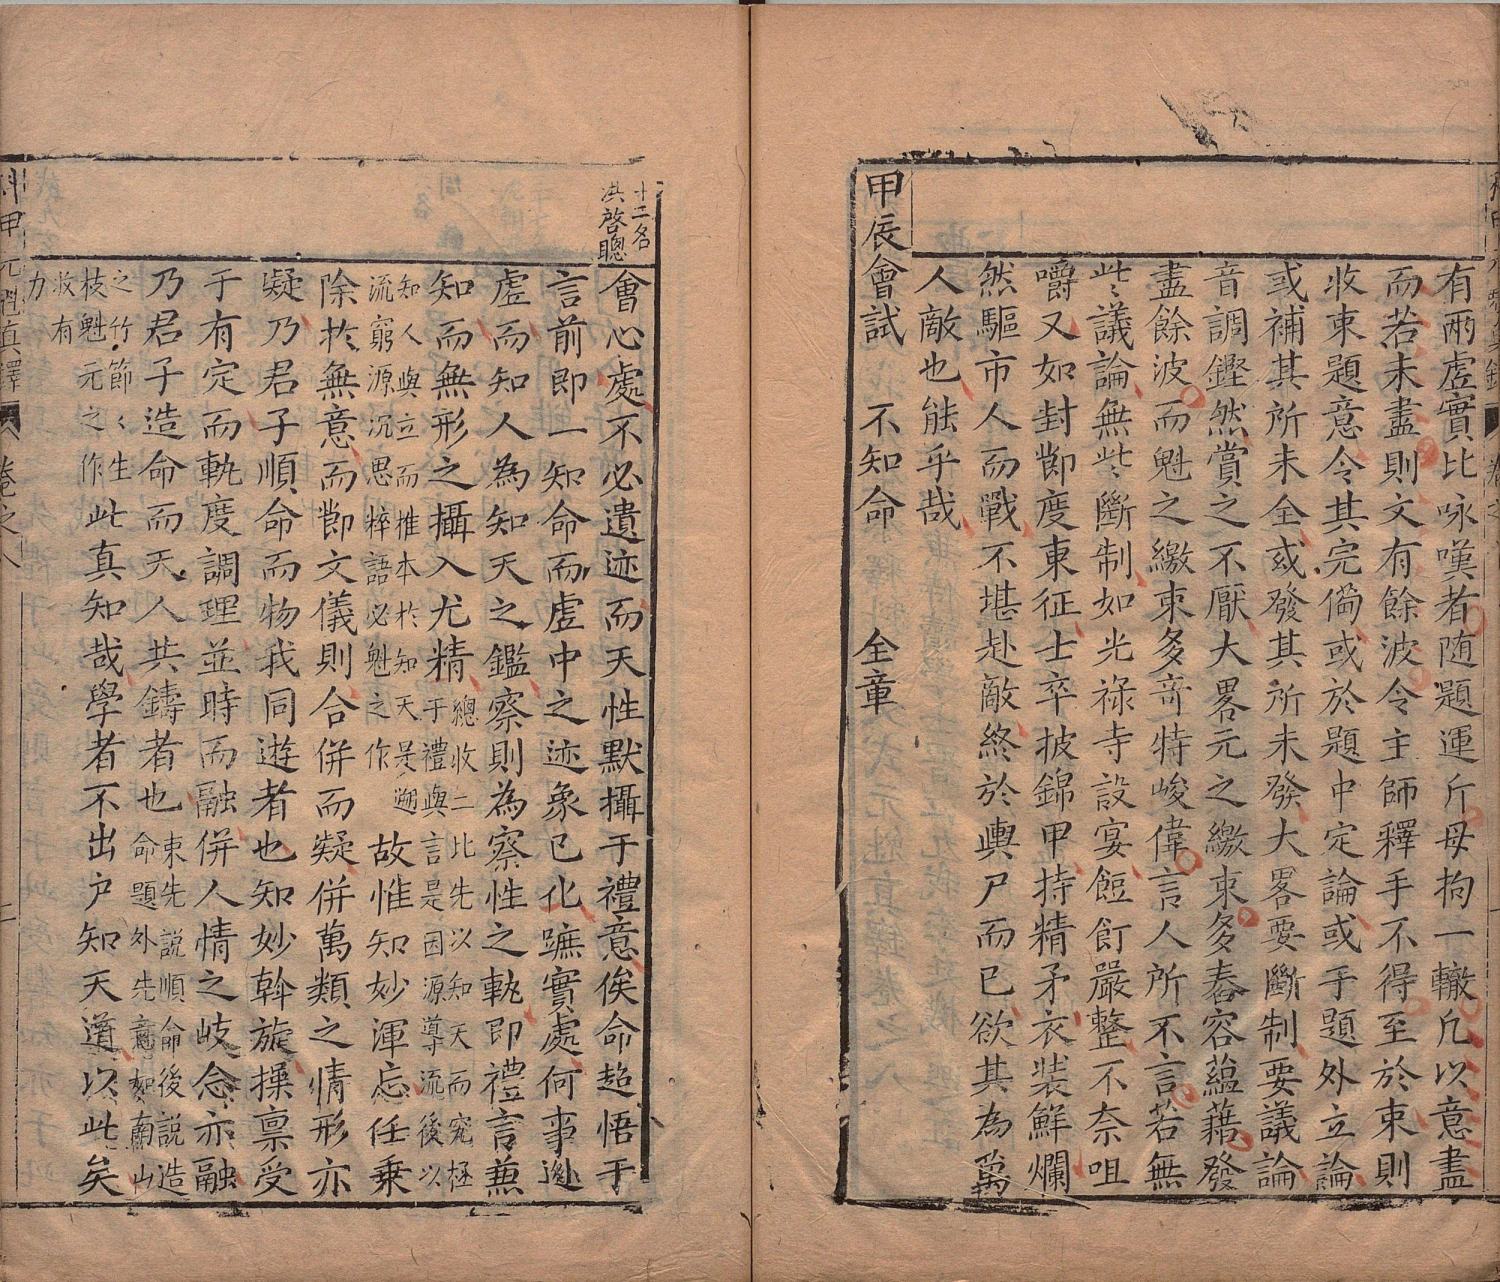 有兩虛實比咏嘆者随題運斤毋拘一轍凡以意盡
而若未盡則文有餘波令主師釋手不得至於束則
收束題意令其完備或於題中定論或于題外立論
或補其所未全或發其所未發大畧要斷制要議論
音調鏗然賞之不厭大畧元之繳束多舂容蘊藉發
盡餘波而魁之繳束多竒特峻偉言人所不言若無
此議論無此斷制如光祿寺設宴饾飣嚴整不奈咀
嚼又如封鄭度東征士卒披錦甲持精矛衣裝鮮爛
然驅市人而戰不堪赴敵終於輿尸而已欲其為萬
人敵也能乎哉
甲辰會試　不知命　全章
十二名
洪啓聰
會心處不必遺迹而天性默攝于禮意俟命超悟于
言前即一知命而虛中之迹象已化蹠實處何事遜
虛而知人為知天之鑑察則為察性之軌即禮言兼
知而無形之攝入尤精總收二比先以知天而究極于禮與言是因源導流後以
知人與立而推本於知天是遡流窮源沉思粹語必魁之作故惟知妙渾忘任乗
除扵無意而節文儀則合併而凝併萬類之情形亦
凝乃君子順命而物我同遊者也知妙斡旋操禀受
于有定而軌度調理並時而融併人情之岐念亦融
乃君子造命而天人共鑄者也束先説順命後説造命題外先意如南山
之竹節〻生枝魁元之作此真知哉學者不出户知天道以此矣
收有
力
科甲元魁真鐸
卷之八